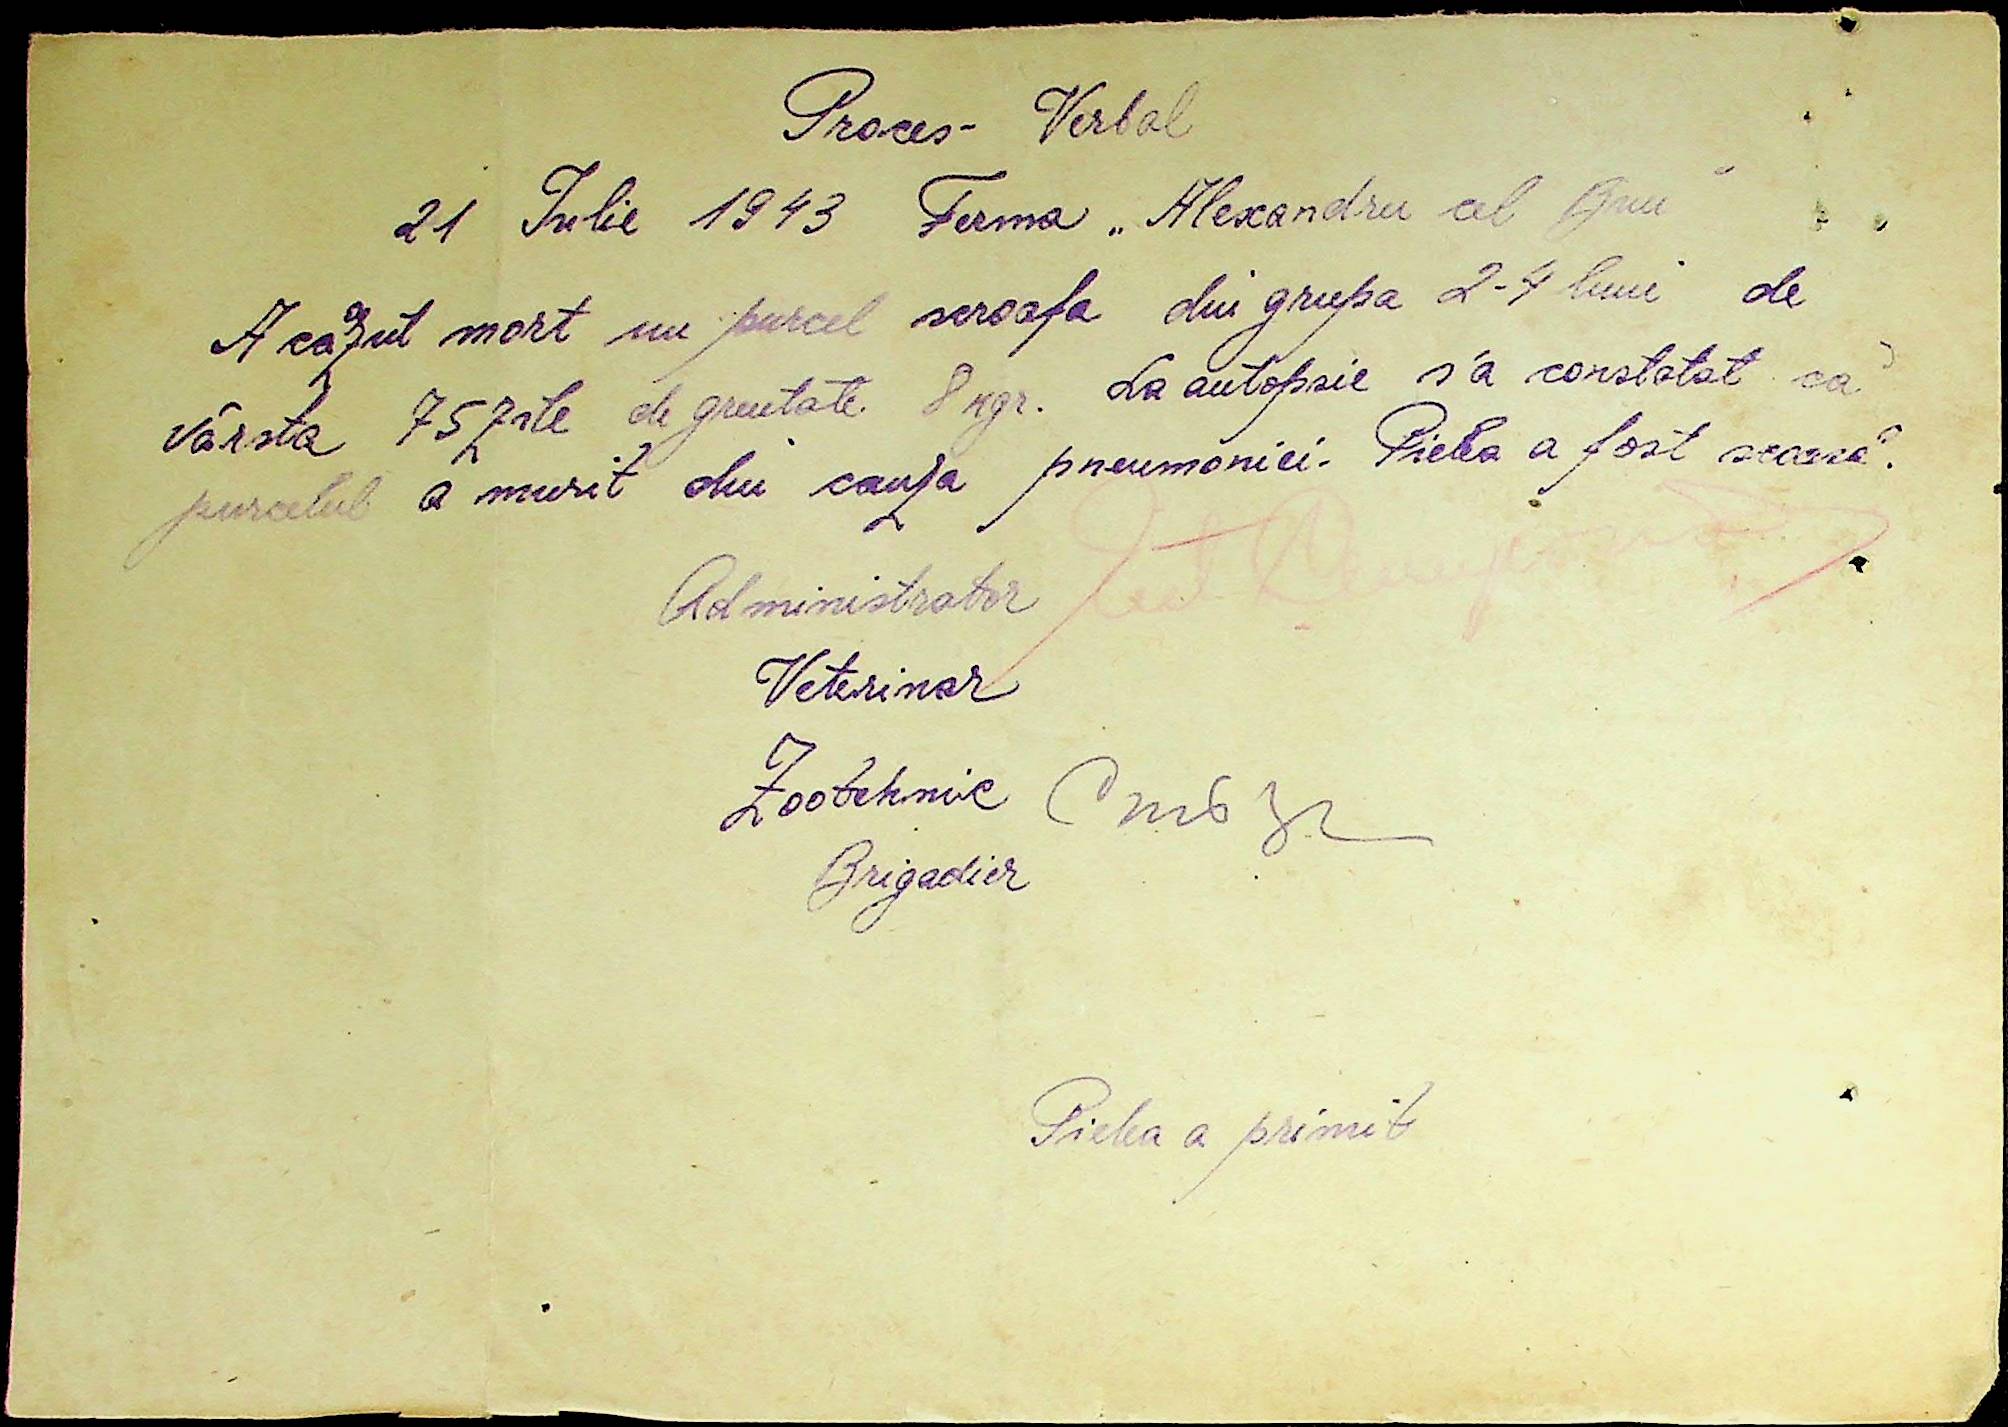 Proces- Verbal
21 Iulie 1943 Ferma „Alexandru cel Bun"
A căzut mort un purcel scroafa din grupa 2-4 luni de
vârsta 75 zile de greutate 8 kgr. La autopsie s'a constatat că
purcelul a murit din cauza pneumoniei. Pielea a fost scoasă.
Administrator
Veterinar
Zootehnic
Brigadier
Pielea a primit